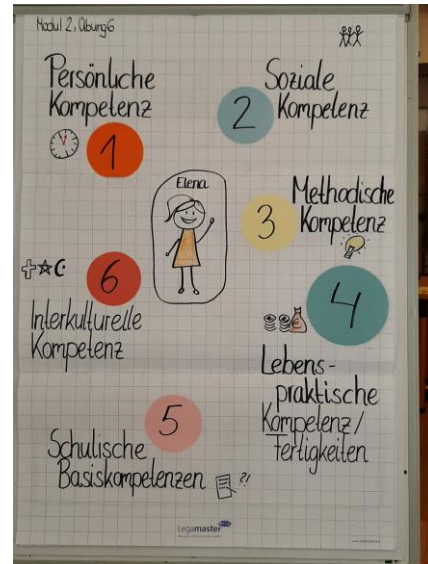 Modul 2, Übung 6
Persönliche
Kompetenz
1
Soziale
Kompetenz
2
Elena
Methodische
Kompetenz
3
4
Lebens-
praktische
Kompetenz/
Fertigkeiten
5
Schulische
Basiskompetenzen
?!
6
Interkulturelle
Kompetenz
Legamaster